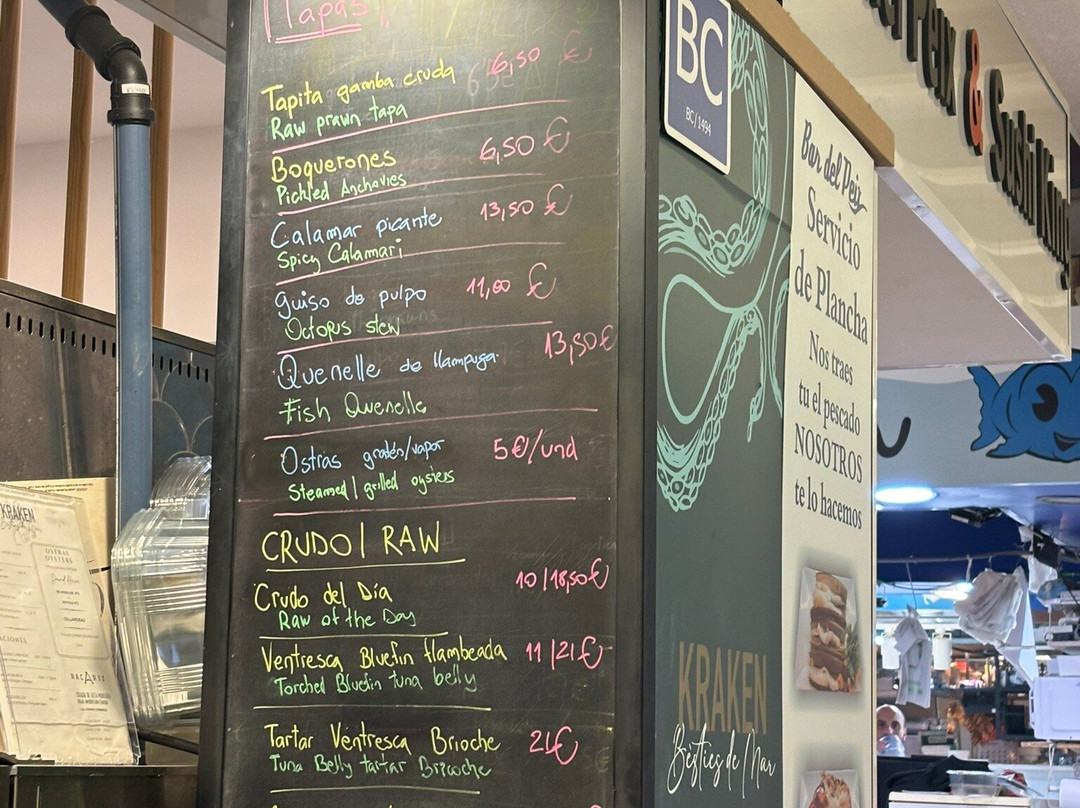 Tapas
Tapita gamba cruda 6,50 €
Raw prawn tapa
Boquerones 6,50 €
Pickled Anchovies
Calamar picante 13,50 €
Spicy Calamari
guiso de pulpo 11,00 €
Octopus stew
Quenelle de llampuga 13,50€
Fish Quenelle
Ostras gratén/vapor 5€/und
Steamed/grilled oysters
CRUDO/RAW
Crudo del Día 10/18,50€
Raw of the Day
Ventresca Bluefin flambeada 11/21€
Torched Bluefin tuna belly
Tartar Ventresca Brioche 21€
Tuna Belly tartar Bricoche
BC
BC/1494
KRAKEN
Besties de Mar
Bar del Peix
Servicio
de Plancha
Nos traes
tu el pescado
NOSOTROS
te lo hacemos
Peix & Sushi
KRAKEN
OSTRAS
OYSTERS